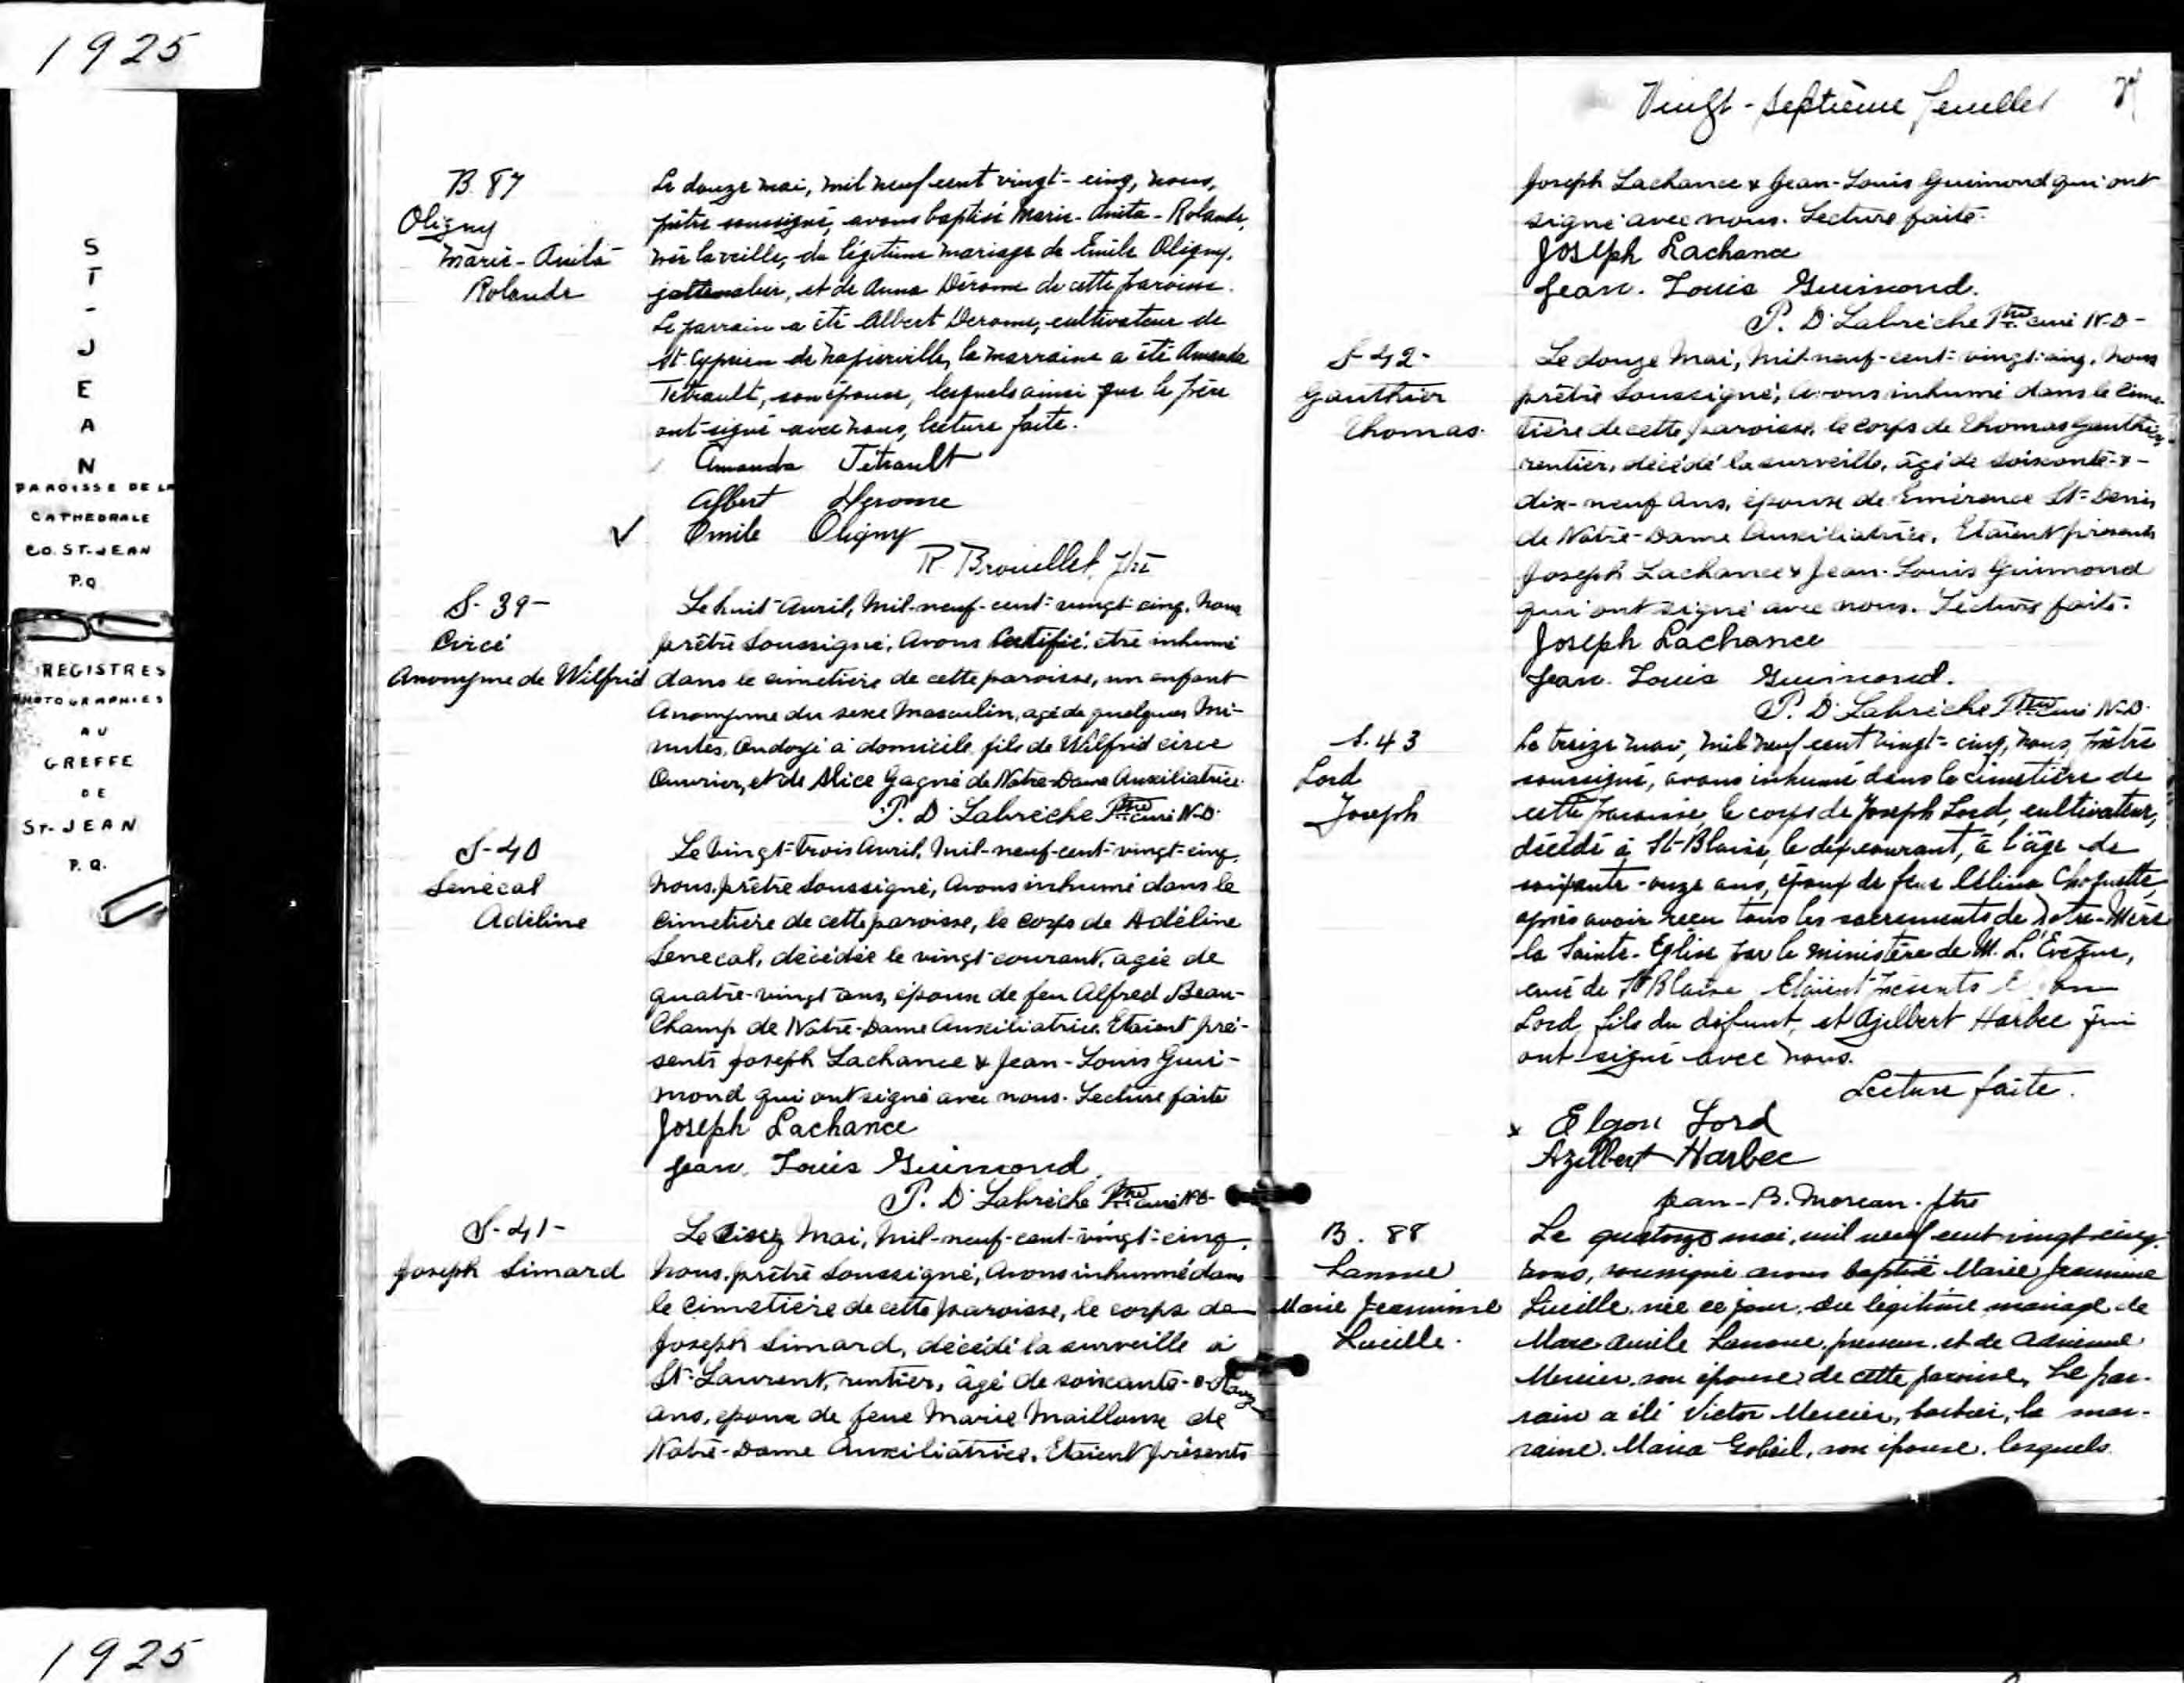 1925
ST-JEAN
PAROISSE DE LA
CATHEDRALE
CO. ST-JEAN
P.Q.
REGISTRES
PHOTOGRAPHIES
AU
GREFFE
DE
ST-JEAN
P.Q.
1925
B. 87
Oligny
Marie-Anita
Rolande
Le douze mai, mil neuf cent vingt-cinq, nous,
prêtre soussigné, avons baptisé Marie-Anita-Rolande,
née la veille, du légitime mariage de Emile Oligny,
journalier, et de Anna Dérome de cette paroisse.
Le parrain a été Albert Derome, cultivateur de
St-Cyprien de Napierville, la marraine a été Amanda
Tétrault, son épouse, lesquels ainsi que le père
ont signé avec nous, lecture faite.
Amanda Tétrault
Albert Derome
Emile Oligny
R Brouillet, ptre
S-39-
Circé
Anonyme de Wilfrid
Le huit Avril, Mil-neuf-cent-vingt-cinq, Nous
prêtre Soussigné, Avons Certifié être inhumé
dans le cimetière de cette paroisse, un enfant
Anonyme du sexe Masculin, agé de quelques Mi-
nutes, Ondoyé à domicile, fils de Wilfrid circé
Ouvrier, et de Alice Gagné de Notre-Dame Auxiliatrice.
P. D. Labrèche Ptre curé N-D.
S-40
Senécal
Adéline
Le Vingt-trois Avril, Mil-neuf-cent-vingt-cinq,
Nous, prêtre Soussigné, Avons inhumé dans le
Cimetière de cette paroisse, le corps de Adéline
Senecal, décédée le vingt courant, agée de
quatre-vingt ans, épouse de feu Alfred Beau-
Champ de Notre-Dame Auxiliatrice. Etaient pré-
sents Joseph Lachance & Jean-Louis Gui-
mond qui ont signé avec nous. Lecture faite
Joseph Lachance
Jean Louis Guimond
P. D. Labrèche Ptre curé N-D-
S-41-
Joseph Simard
Le Mai, Mil-neuf-cent-vingt-cinq,
Nous, prêtre Soussigné, Avons inhumé dans
le Cimetière de cette paroisse, le corps de
Joseph Simard, décédé la surveille à
St-Laurent, rentier, âgé de soixante-
ans, epoux de feue Marie Mailloux de
Notre-Dame Auxiliatrice. Etaient présents
Vingt-septième feuillet
Joseph Lachance & Jean-Louis Guimond qui ont
signé avec nous. Lecture faite.
Joseph Lachance
Jean. Louis Guimond.
P. D. Labrèche Ptre curé N-D-
S-42-
Gauthier
Thomas.
Le douze Mai, Mil-neuf-cent-vingt-cinq, Nous
prêtre Soussigné, Avons inhumé dans le Cime-
tière de cette paroisse, le corps de Thomas Gauthier,
rentier, décédé la surveille, âgé de soixante-&-
dix-neuf ans, époux de Emérence St-Denis
de Notre-Dame Auxiliatrice. Etaient présents
Joseph Lachance & Jean-Louis Guimond
qui ont signé avec nous. Lecture faite.
Joseph Lachance
Jean Louis Guimond.
P. D. Labrèche Ptre curé N-D.
S. 43
Lord
Joseph
Le treize mai, mil neuf cent vingt-cinq, nous, prêtre
soussigné, avons inhumé dans le cimetière de
cette paroisse, le corps de Joseph Lord, cultivateur,
décédé à St-Blaise, le dix courant, à l'âge de
soixante-onze ans, époux de feue Célina Choquette,
après avoir reçu tous les sacrements de Notre-Mère
la Sainte-Eglise par le ministère de M. L'Evêque,
curé de St Blaise Etaient présents
Lord, fils du défunt, et Azilbert Harbec qui
ont signé avec nous.
Lecture faite.
x Elgon Lord
Azilbert Harbec
Jean-B. Moreau. ptre
B. 88
Lanoue
Marie Jeannine
Lucille.
Le quatorze mai, mil neuf cent vingt cinq,
nous, soussigné avons baptisé Marie Jeannine
Lucille, née ce jour, du légitime mariage de
Marc Lanoue, et de Adrienne
Mercier, son épouse de cette paroisse. Le par-
rain a été Victor Mercier, barbier, la mar-
raine, Maria Gobeil, son épouse, lesquels